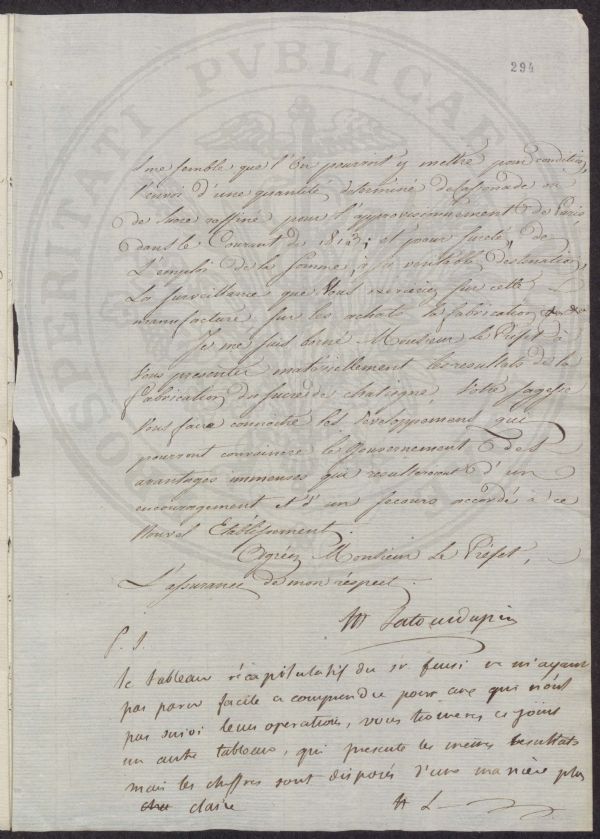 294
il me semble que l'on pourroit y mettre pour condition,
l'envoi d'une quantité determiné de cassonade ou
de sucre raffiné pour l'approvisionnement de Paris
dans le Courant de 1813; et pour sureté, de
L'emploi de la somme, à sa veritable destination,
La surveillance que Vous exercerez sur cette
manufacture sur les achats la fabrication
Je me suis borné Monsieur Le Préfet à
Vous presenter matériellement les resultats de la
fabrication des sucres de chataigne, Votre sagesse
Vous fera connoitre les développements qui
pourront convaincre le Gouvernement des
avantages immenses qui resulteroient d'un
encouragement et d'un secours accordé à ce
Nouvel Etablissement.
Agréez Monsieur Le Préfet,
L'assurance de mon respect.
H Latourdupin
P. S.
le tableau récapitulatif du sr. ne m'ayant
pas paru facile a comprendre pour ceux qui n'ont
pas suivi leurs operations, vous trouverez ci joint
un autre tableau, qui presente les memes resultats
mais les chiffres sont disposés d'une maniere plus
claire H L
PROSPERITATI PVBLICAE